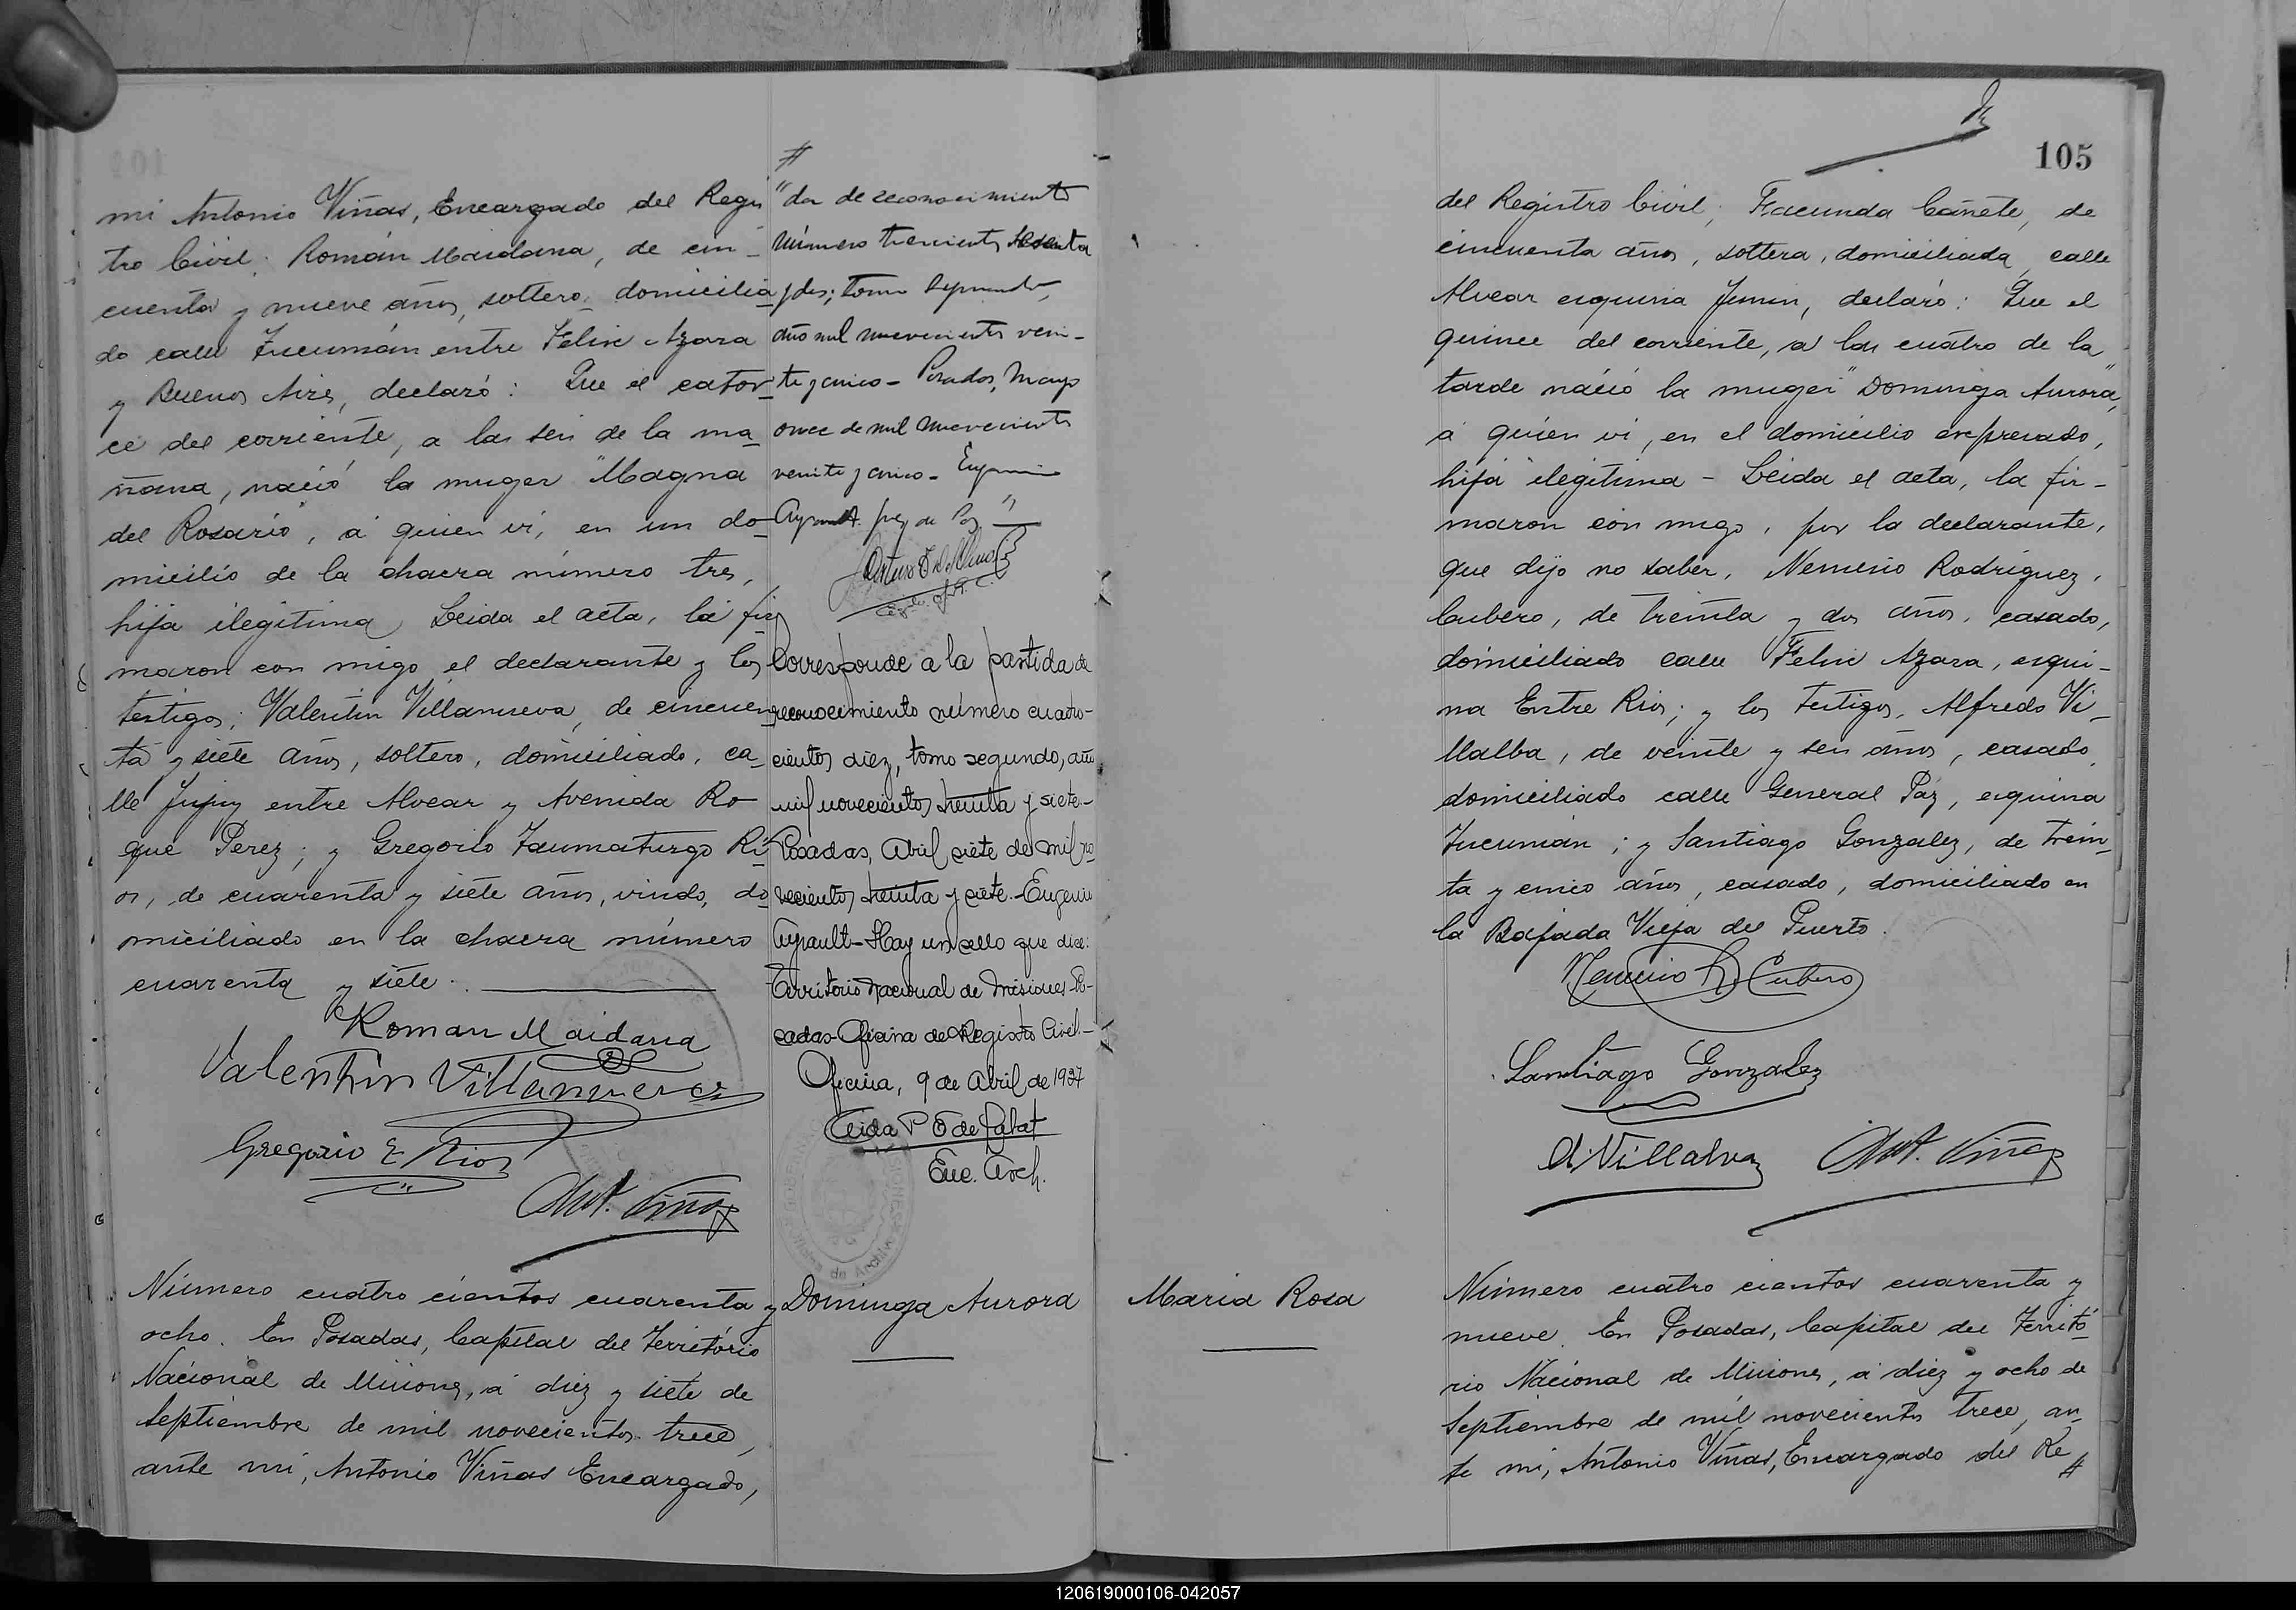 mi Antonio Viñas, Encargado del Regis
tro Civil; Román Maidana, de cin-
cuenta y nueve años, soltero, domicilia
do calle Tucumán entre Felix Azara
y Buenos Aires, declaró: Que el cator
ce del corriente, a las seis de la ma-
ñana, nació la muger "Magna
del Rosario", á quien vi, en un do-
micilio de la chacra número tres,
hija ilegítima Leida el acta, la fir
maron con migo el declarante y los
testigos; Valentin Villanueva, de cincuen
ta y siete años, soltero, domiciliado, ca-
lle Jujuy entre Alvear y Avenida Ro-
que Perez; y Gregorio Taumaturgo Ri
os, de cuarenta y siete años, viudo, do
miciliado en la chacra número
cuarenta y siete.
Roman Maidana
Valentin Villanueva
Gregorio T Rios
Ant. Viñas
Número cuatro cientos cuarenta y
ocho. En Posadas, Capital del Territorio
Nacional de Misiones, á diez y siete de
Septiembre de mil novecientos trece,
ante mi, Antonio Viñas Encargado,
#
"da de reconocimiento
número trecientos sesenta
y dos; tomo segundo,
año mil novecientos vein-
te y cinco - Posadas, Mayo
once de mil novecientos
veinte y cinco - Eugenio
Ayrault. Juez de Paz"
Corresponde a la partida de
reconocimiento número cuatro-
cientos diez, tomo segundo, año
mil novecientos treinta y siete.-
Posadas, Abril siete de mil no
vecientos treinta y siete.- Eugenio
Ayrault - Hay un sello que dice:
Territorio Nacional de Misiones - Po-
sadas - Oficina de Registro Civil.-
Oficina, 9 de Abril de 1937
Enc. Arch.
Dominga Aurora
105
del Registro Civil; Facunda Cañete, de
cincuenta años, soltera, domiciliada, calle
Alvear esquina Junin, declaró: Que el
quince del corriente, a las cuatro de la
tarde nació la muger "Dominga Aurora",
á quien vi, en el domicilio expresado,
hija ilegítima - Leida el acta, la fir-
maron con migo, por la declarante,
que dijo no saber, Nemesio Rodriguez,
Cubero, de treinta y dos años, casado,
domiciliado calle Felix Azara, esqui-
na Entre Rios; y los testigos, Alfredo Vi-
llalba, de veinte y seis años, casado,
domiciliado calle General Paz, esquina
Tucumán; y Santiago Gonzalez, de trein-
ta y cinco años, casado, domiciliado en
la Bajada Vieja del Puerto.
Nemesio R. Cubero
Santiago Gonzalez
A. Villalva
Ant. Viñas
Maria Rosa
Número cuatro cientos cuarenta y
nueve. En Posadas, Capital del Territo-
rio Nacional de Misiones, á diez y ocho de
Septiembre de mil novecientos trece, an-
te mi, Antonio Viñas, Encargado del Re
#
120619000106-042057